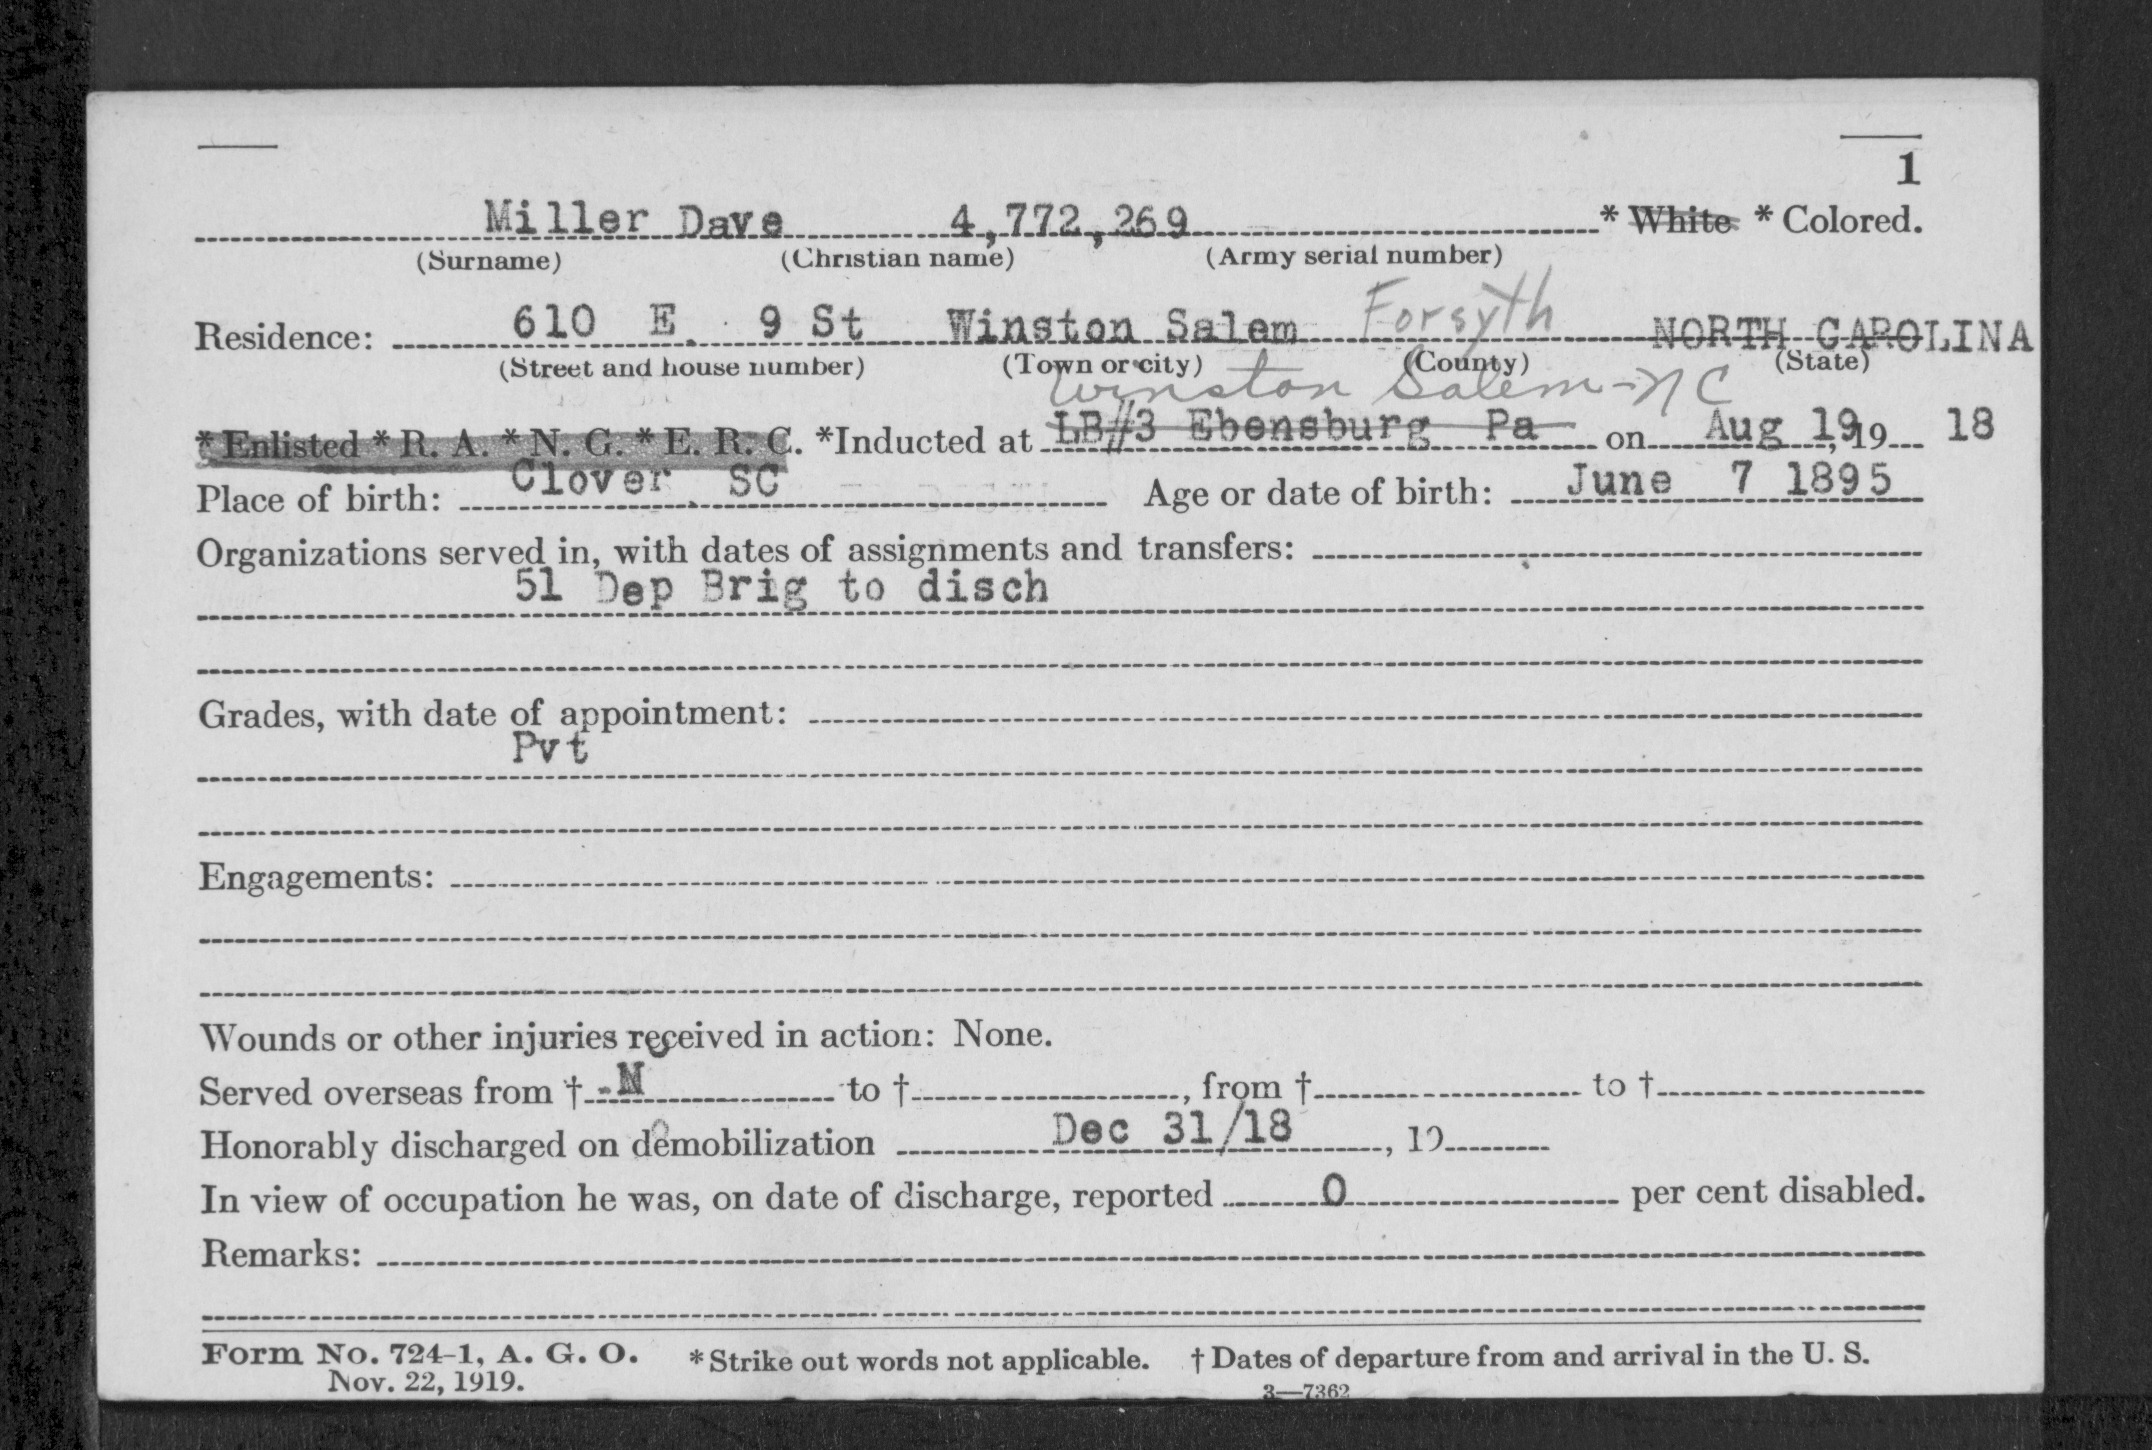 1
Miller Dave 4,772,269 * White * Colored.
(Surname) (Christian name) (Army serial number)
Residence: 610 E. 9 St Winston Salem Forsyth NORTH CAROLINA
(Street and house number) (Town or city) (County) (State)
Winston Salem - NC
* Enlisted * R. A. * N. G. * E. R. C. *Inducted at LB#3 Ebensburg Pa on Aug 19, 19 18
Place of birth: Clover SC Age or date of birth: June 7 1895
Organizations served in, with dates of assignments and transfers:
51 Dep Brig to disch
Grades, with date of appointment:
Pvt
Engagements:
Wounds or other injuries received in action: None.
Served overseas from † -N to † , from † to †
Honorably discharged on demobilization Dec 31/18 , 19
In view of occupation he was, on date of discharge, reported 0 per cent disabled.
Remarks:
Form No. 724-1, A. G. O. *Strike out words not applicable. † Dates of departure from and arrival in the U. S.
Nov. 22, 1919. 3—7362